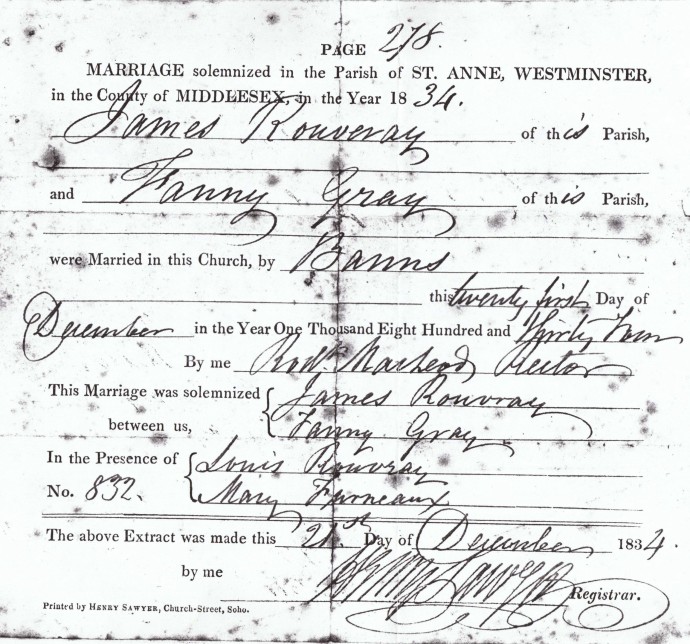 PAGE 278.
MARRIAGE solemnized in the Parish of ST. ANNE, WESTMINSTER,
in the County of MIDDLESEX, in the Year 1834.
James Rouveray of this Parish,
and Fanny Gray of this Parish,
were Married in this Church, by Banns
this twenty first Day of
December in the Year One Thousand Eight Hundred and Thirty Four
By me Rodk. Macleod, Rector
This Marriage was solemnized between us, { James Rouvray
Fanny Gray
In the Presence of { Louis Rouvray
No. 832. Mary Furneaux
The above Extract was made this 21st. Day of December 1834.
by me Registrar.
Printed by HENRY SAWYER, Church-Street, Soho.